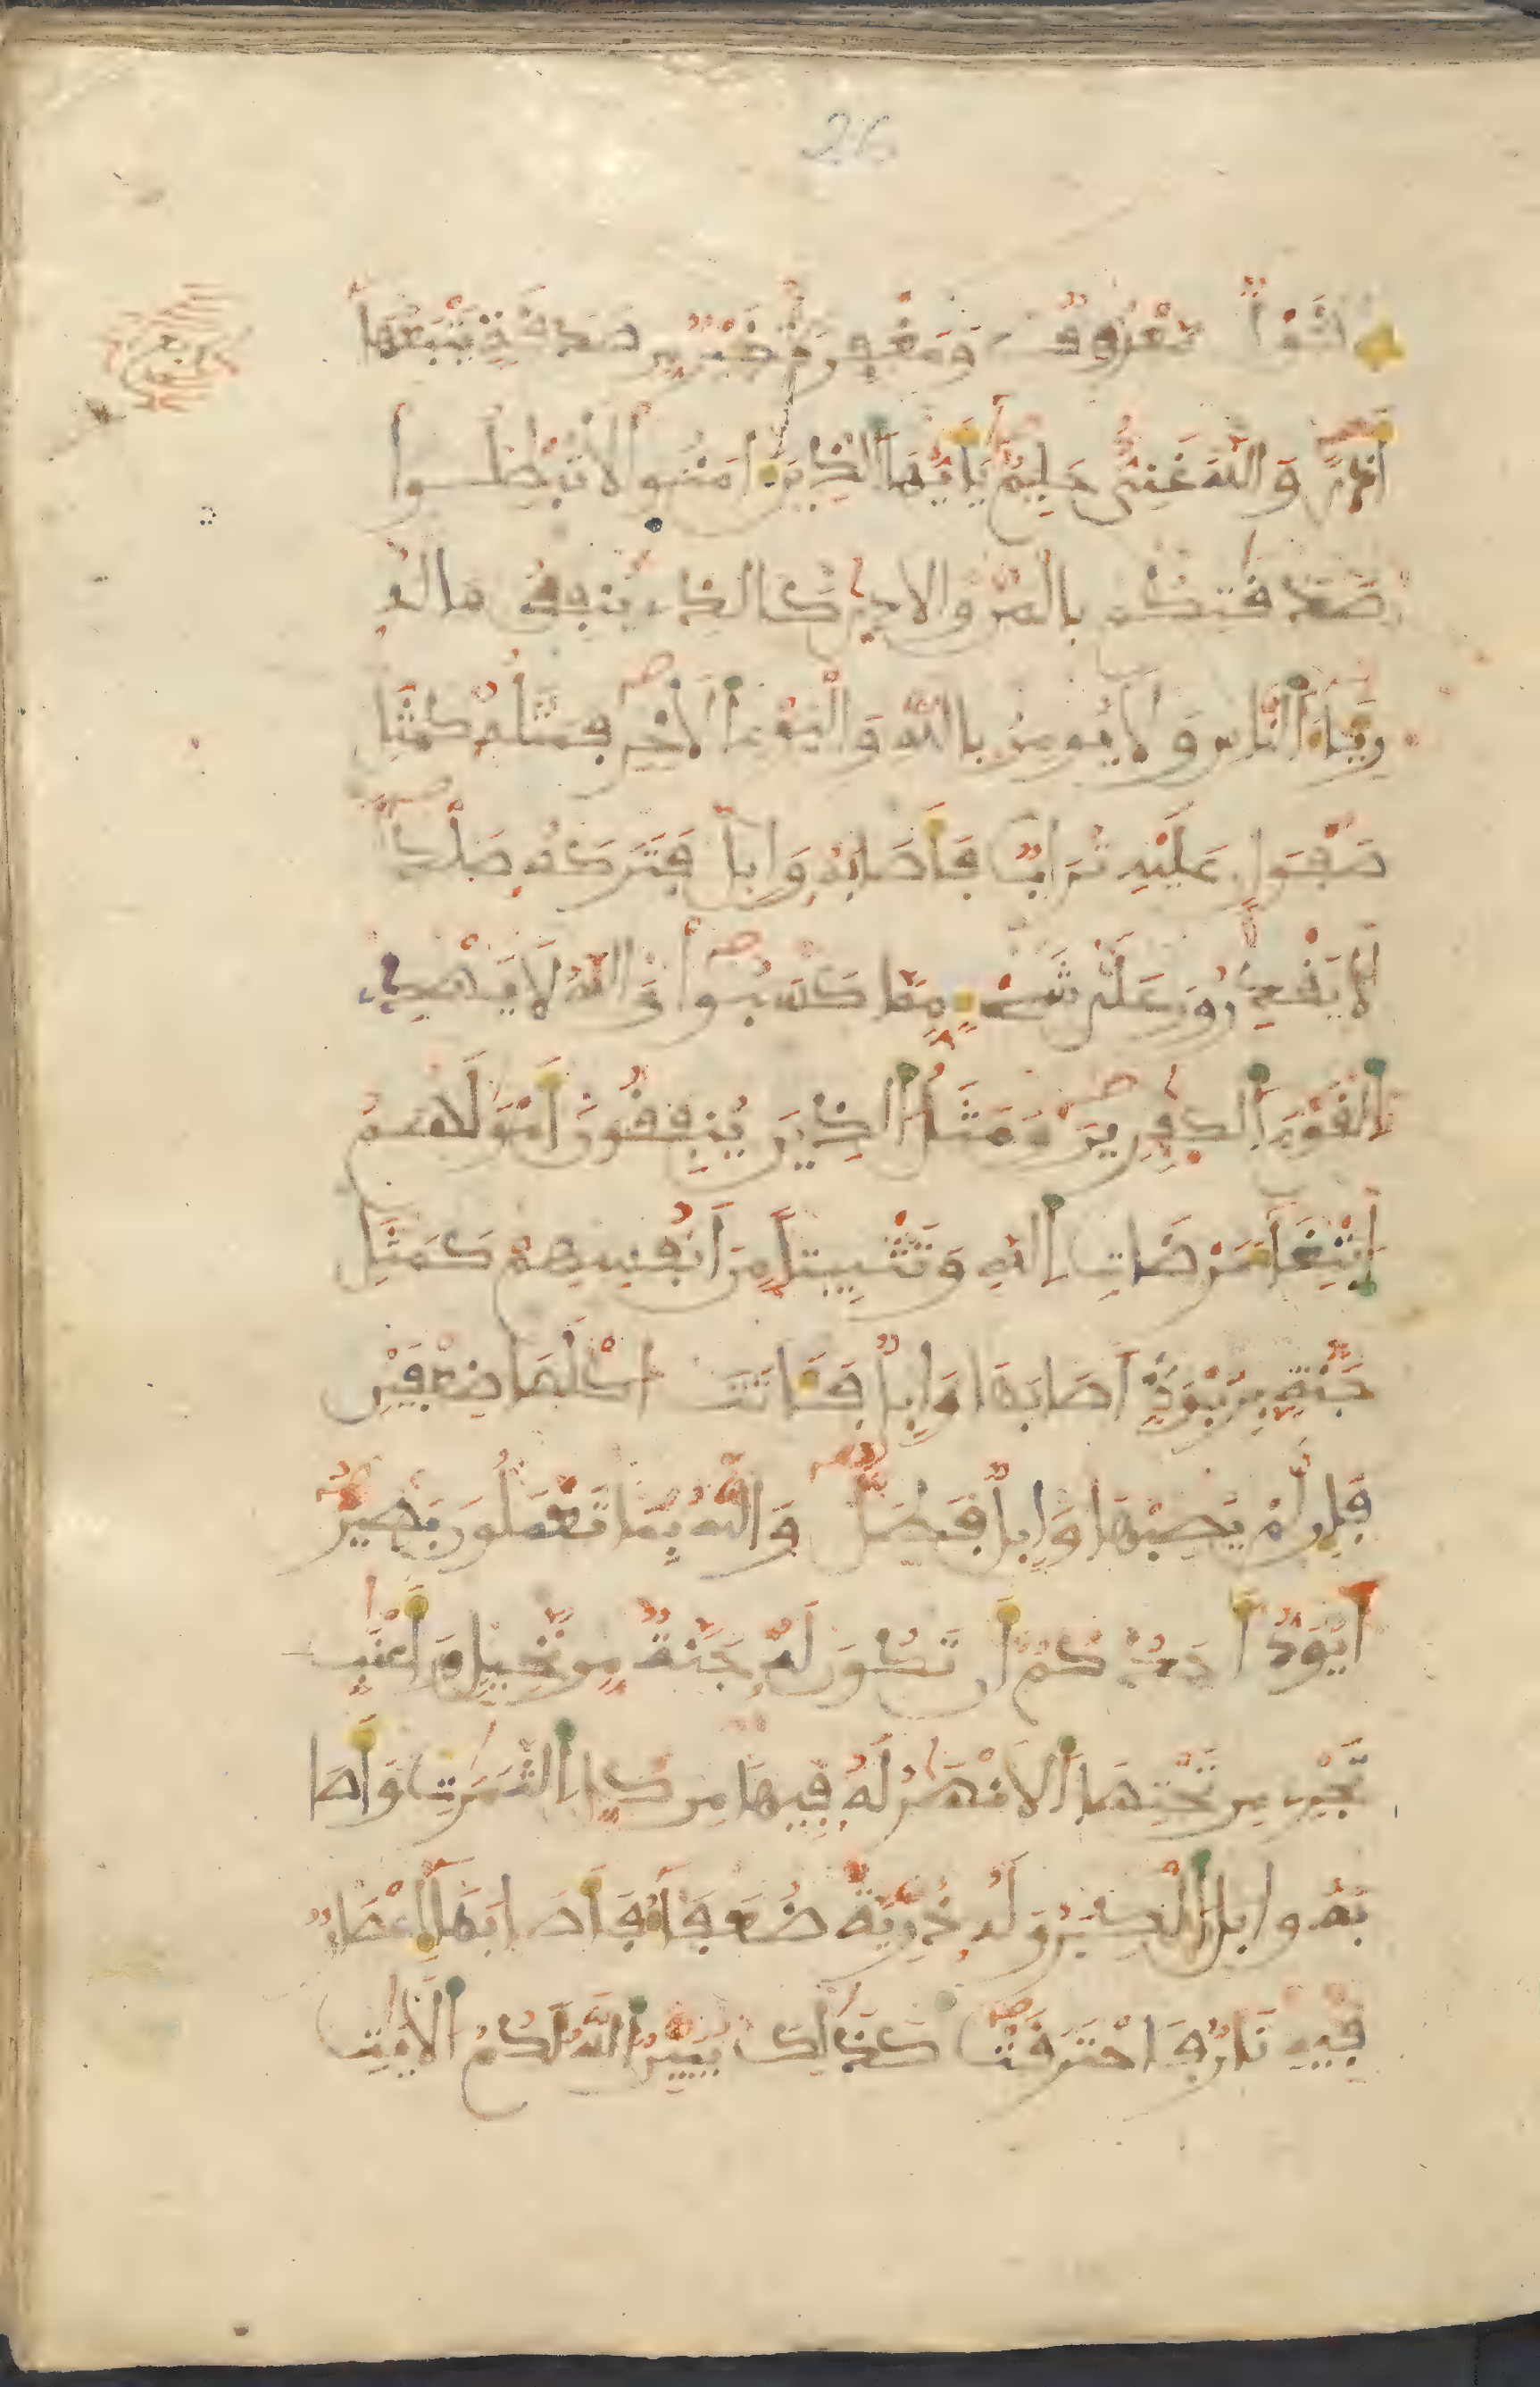 26
قَوْلٌ مَّعْرُوفٌ وَمَغْفِرَةٌ خَيْرٌ مِّن صَدَقَةٍ يَتْبَعُهَا
أَذىً وَاللَّهُ غَنِىٌّ حَلِيمٌ يَٰأَيُّهَا الَّذِينَ ءَامَنُوا لَا تُبْطِلُوا
صَدَقَٰتِكُم بِالْمَنِّ وَالْاَذ۪ىٰ كَالَّذِے يُنفِقُ مَالَهُ
رِيَآءَ اَ۬لنَّاسِ وَلَا يُومِنُ بِاللَّهِ وَالْيَوْمِ اِ۬لَاخِرِ فَمَثَلُهُ كَمَثَلِ
صَفْوَانٍ عَلَيْهِ تُرَابٌ فَأَصَابَهُ وَابِلٌ فَتَرَكَهُ صَلْداً
لَّا يَقْدِرُونَ عَلَىٰ شَےْءٍ مِّمَّا كَسَبُوا وَاللَّهُ لَا يَهْدِے
اِ۬لْقَوْمَ اَ۬لْكٰفِرِينَ وَمَثَلُ اُ۬لذِينَ يُنفِقُونَ أَمْوَٰلَهُمُ
اُ۪بْتِغَآءَ مَرْضَاتِ اِ۬للَّهِ وَتَثْبِيتاً مِّنَ اَنفُسِهِمْ كَمَثَلِ
جَنَّةٍ بِرُبْوَةٍ اَصَابَهَا وَابِلٌ فَـَٔاتَتُ اكْلَهَا ضِعْفَيْنِ
فَإِن لَّمْ يُصِبْهَا وَابِلٌ فَطَلٌّ وَاللَّهُ بِمَا تَعْمَلُونَ بَصِيرٌ
اَيَوَدُّ أَحَدُكُمُ أَن تَكُونَ لَهُ جَنَّةٌ مِّن نَّخِيلٍ وَأَعْنَٰبٍ
تَجْرِے مِن تَحْتِهَا اَ۬لَانْهَٰرُ لَهُ فِيهَا مِن كُلِّ اِ۬لثَّمَرَٰتِ وَأَصَا
بَهُ وابل الْكِبَرُ وَلَهُ ذُرِّيَّةٌ ضُعَفَآءُ فَأَصَابَهَا إِعْصَارٌ
فِيهِ نَارٌ فَاحْتَرَقَتْ كَذَٰلِكَ يُبَيِّنُ اُ۬للَّهُ لَكُمُ الْأَيَٰتِ